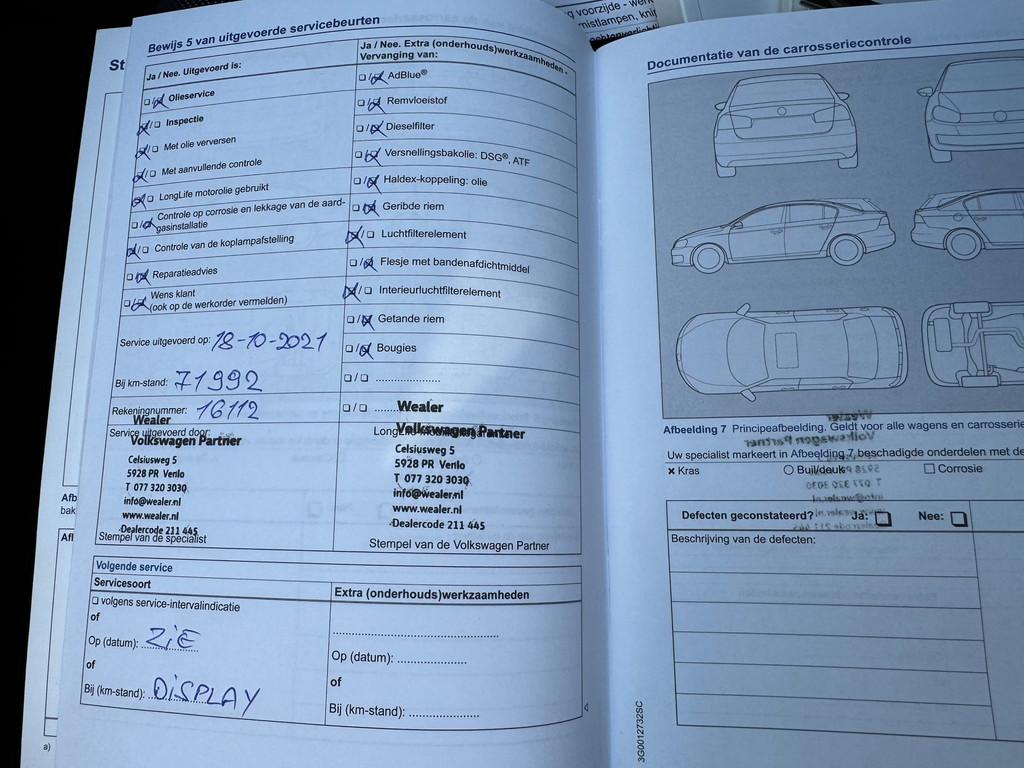 g voorzijde - werk
mistlampen, knip
St
Bewijs 5 van uitgevoerde servicebeurten
Ja / Nee. Uitgevoerd is:
Olieservice
Inspectie
Met olie verversen
Met aanvullende controle
LongLife motorolie gebruikt
Controle op corrosie en lekkage van de aard-
gasinstallatie
Controle van de koplampafstelling
Reparatieadvies
Wens klant
(ook op de werkorder vermelden)
Service uitgevoerd op: 18-10-2021
Bij km-stand: 71992
Rekeningnummer: 16112
Service uitgevoerd door:
Wealer
Volkswagen Partner
Celsiusweg 5
5928 PR Venlo
T 077 320 3030
info@wealer.nl
www.wealer.nl
Dealercode 211 445
Stempel van de specialist
Ja / Nee. Extra (onderhouds)werkzaamheden -
Vervanging van:
AdBlue®
Remvloeistof
Dieselfilter
Versnellingsbakolie: DSG®, ATF
Haldex-koppeling: olie
Geribde riem
Luchtfilterelement
Flesje met bandenafdichtmiddel
Interieurluchtfilterelement
Getande riem
Bougies
Wealer
Volkswagen Partner
Celsiusweg 5
5928 PR Venlo
T 077 320 3030
info@wealer.nl
www.wealer.nl
Dealercode 211 445
Stempel van de Volkswagen Partner
Volgende service
Servicesoort
volgens service-intervalindicatie
of
Op (datum): ZIE
of
Bij (km-stand): DISPLAY
Extra (onderhouds)werkzaamheden
Op (datum):
of
Bij (km-stand):
a)
Documentatie van de carrosseriecontrole
Afbeelding 7 Principeafbeelding. Geldt voor alle wagens en carrosserie
Uw specialist markeert in Afbeelding 7 beschadigde onderdelen met de
× Kras
Buil/deuk
Corrosie
Defecten geconstateerd? Ja: Nee:
Beschrijving van de defecten:
3G0012732SC